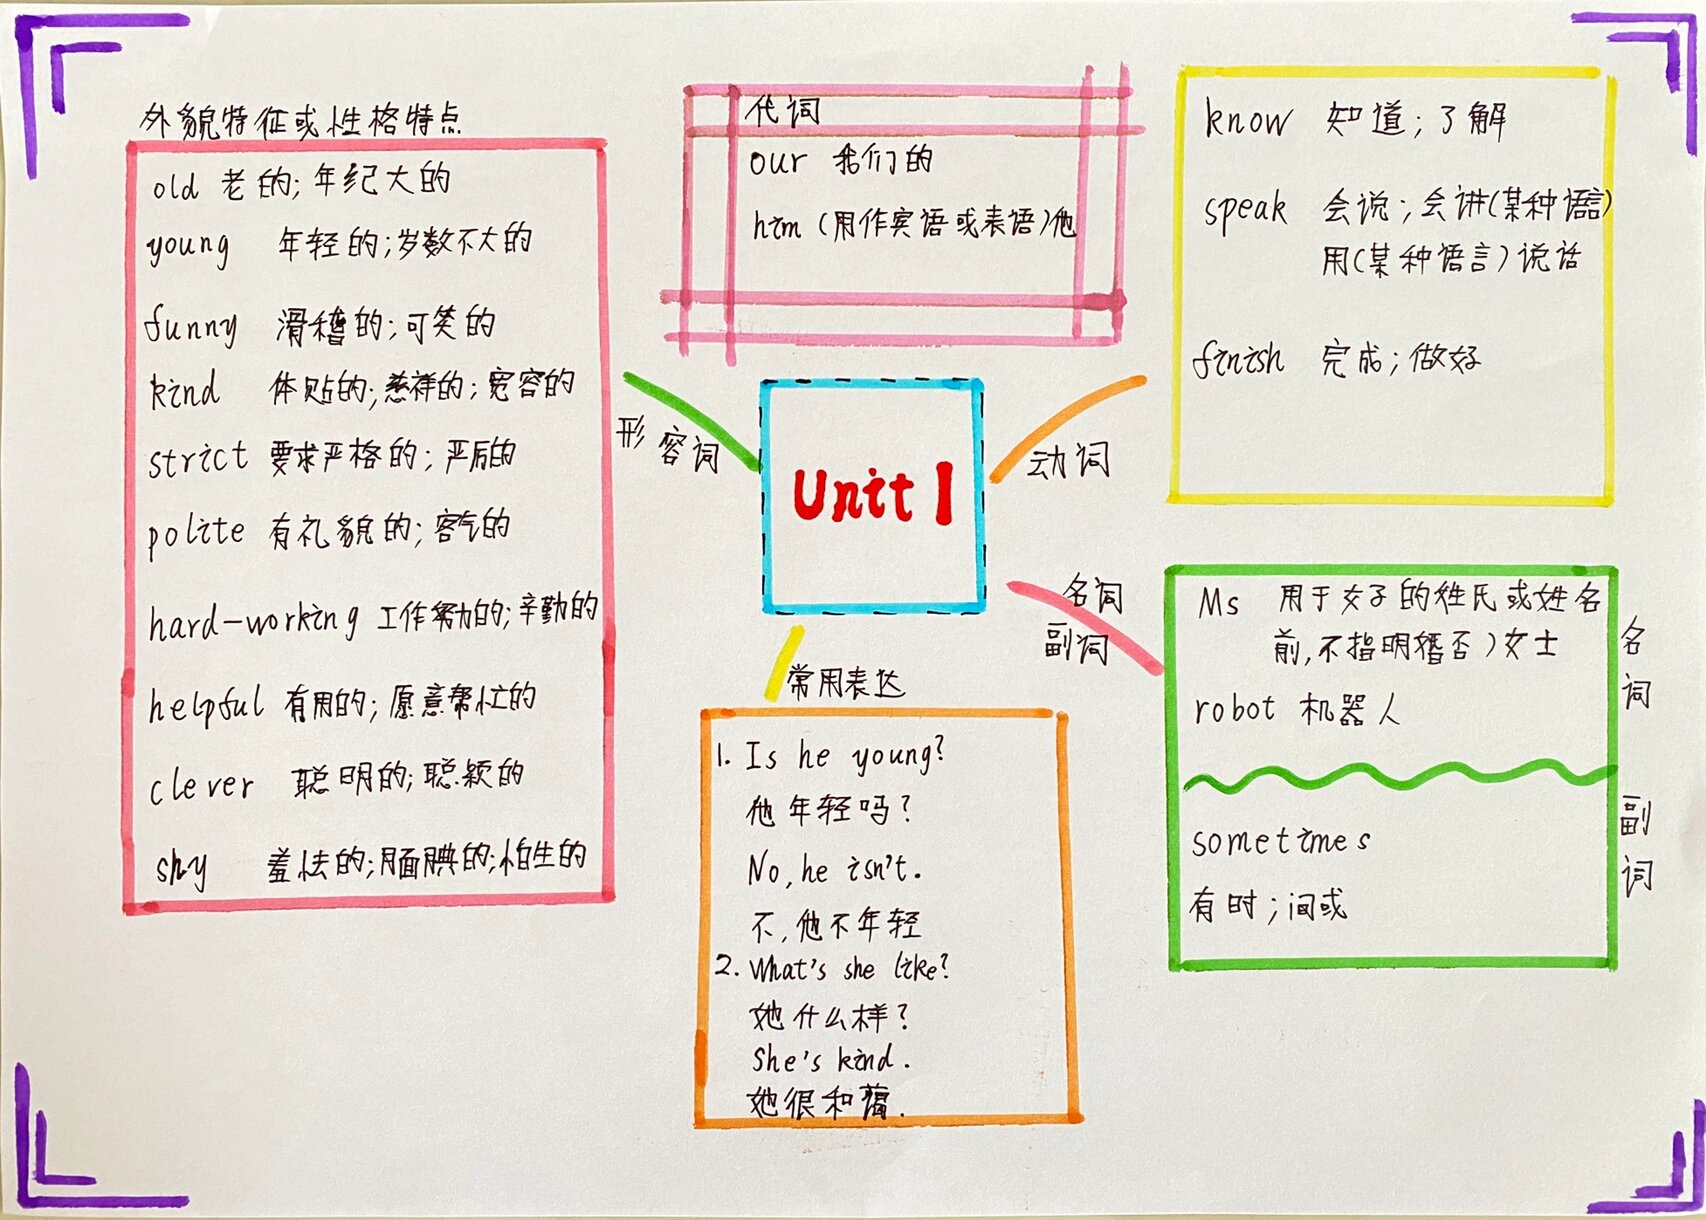 外貌特征或性格特点
old 老的;年纪大的
young 年轻的;岁数不大的
funny 滑稽的;可笑的
kind 体贴的;慈祥的;宽容的
strict 要求严格的;严厉的
polite 有礼貌的;客气的
hard-working 工作努力的;辛勤的
helpful 有用的;愿意帮忙的
clever 聪明的;聪颖的
shy 羞怯的;腼腆的;怕生的
形容词
代词
our 我们的
him (用作宾语或表语)他
Unit 1
动词
know 知道;了解
speak 会说;会讲(某种语言)
用(某种语言)说话
finish 完成;做好
名词
副词
Ms 用于女子的姓氏或姓名
前,不指明婚否)女士
robot 机器人
名词
sometimes
有时;间或
副词
常用表达
1. Is he young?
他年轻吗?
No, he isn't.
不,他不年轻
2. What's she like?
她什么样?
She's kind.
她很和蔼.